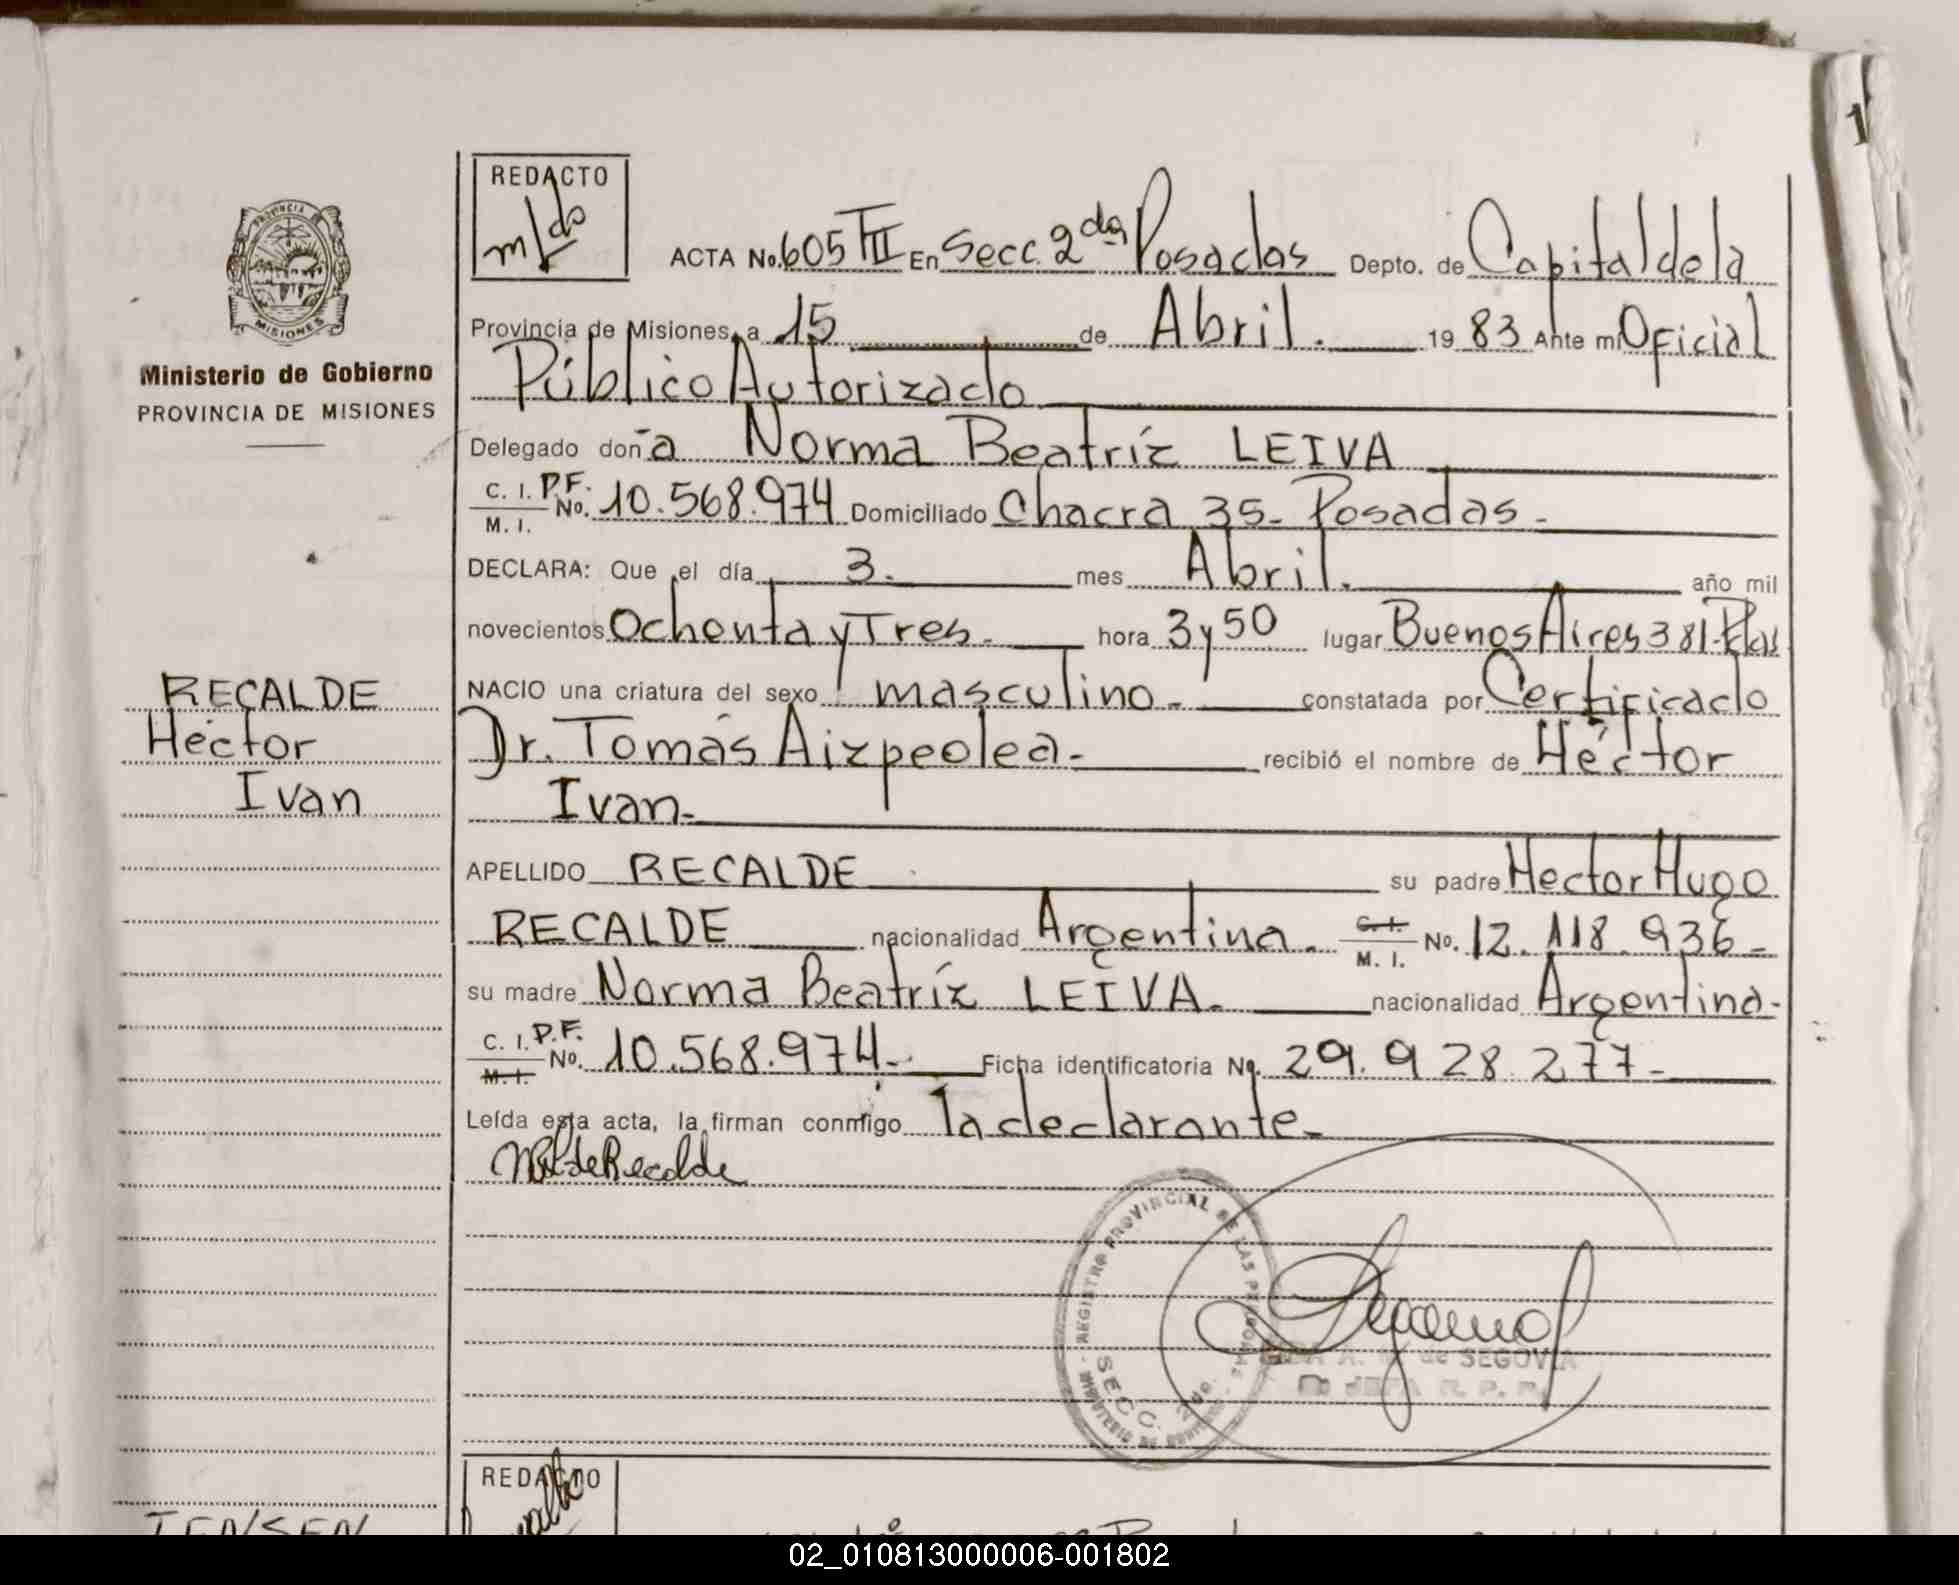 REDACTO
ACTA No. 605 TII En Secc. 2da Posadas Depto. de Capital de la
Provincia de Misiones, a 15 de Abril. 19 83 Ante mi Oficial
Público Autorizado
Delegado doña Norma Beatríz LEIVA
C. I. P.F. No. 10.568.974 Domiciliado Chacra 35- Posadas-
M. I.
DECLARA: Que el día 3. mes Abril. año mil
novecientos Ochenta y Tres- hora 3 y 50 lugar Buenos Aires 381-Pdas
NACIO una criatura del sexo masculino- constatada por Certificado
Dr. Tomás Aizpeolea- recibió el nombre de Héctor
Ivan-
APELLIDO RECALDE su padre Hector Hugo
RECALDE nacionalidad Argentina. C. I. No. 12.118.936-
M. I.
su madre Norma Beatríz LEIVA. nacionalidad Argentina-
C. I. P.F. No. 10.568.974- Ficha identificatoria No. 29.928.277-
M. I.
Leída esta acta, la firman conmigo la declarante-
de Recalde
PROVINCIA
MISIONES
Ministerio de Gobierno
PROVINCIA DE MISIONES
RECALDE
Héctor
Ivan
REGISTRO PROVINCIAL DE LAS PERSONAS
SECC. 2da.
de SEGOVIA
JEFA R. P. P.
REDACTO
JENSEN
1
02_010813000006-001802